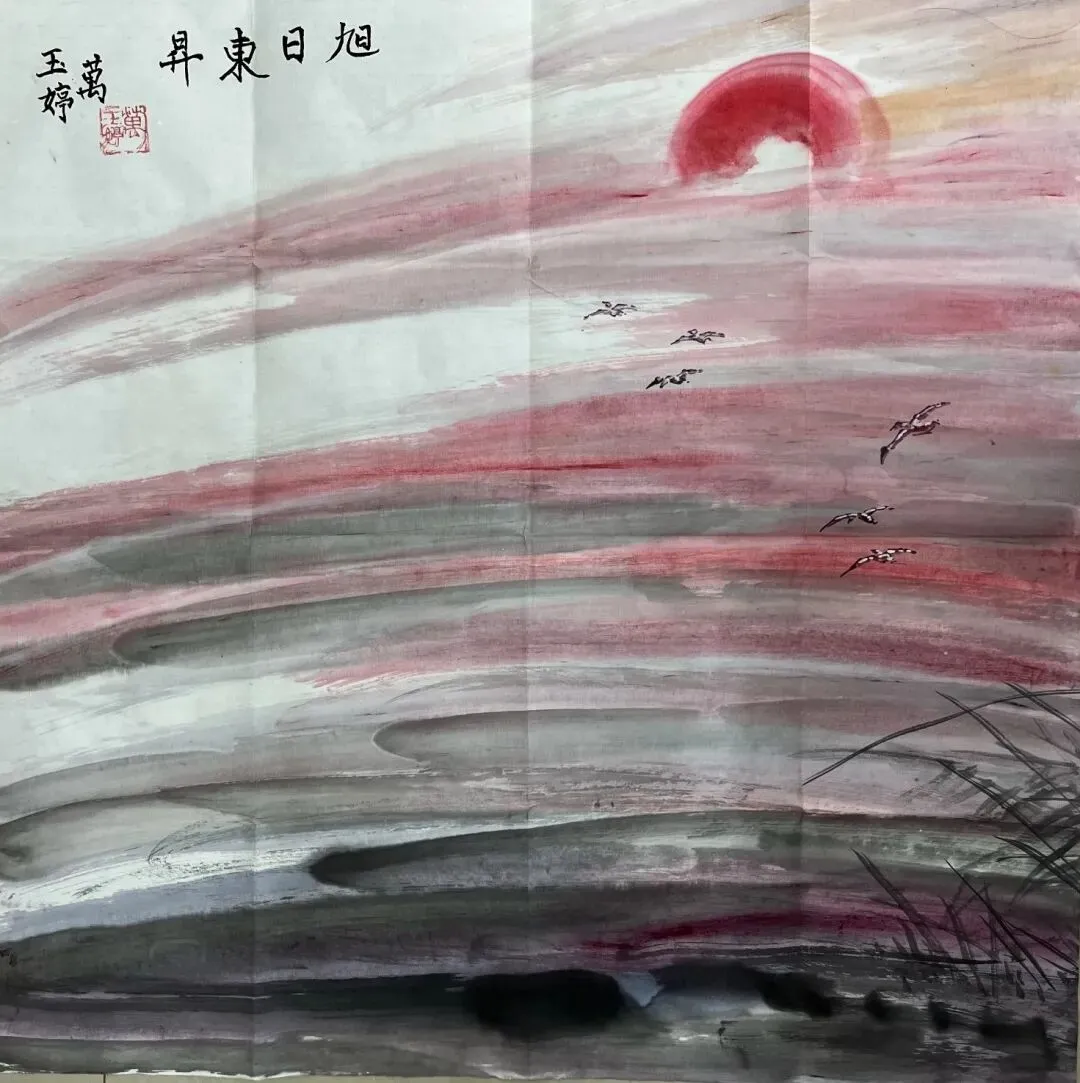 旭日東昇
萬玉婷
萬玉婷